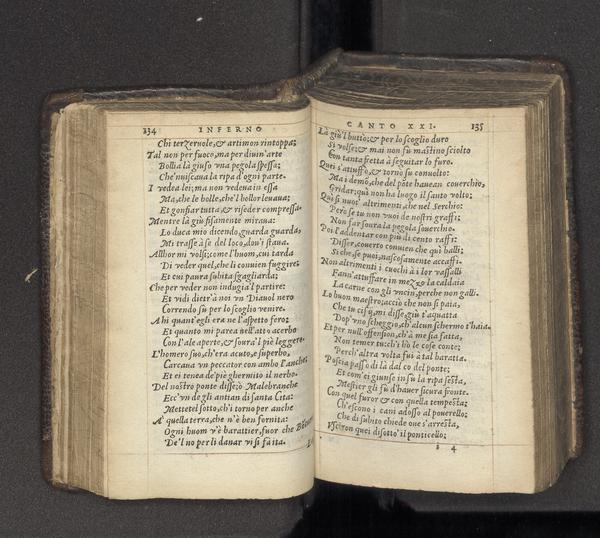 134 INFERNO
Chi terzeruole, & artimon rintoppa;
Tal non per fuoco, ma per diuin'arte
Bollia là giuso vna pegola spessa;
Che'nuiscaua la ripa d'ogni parte.
I vedea lei; ma non vedeua in essa
Ma, che le bolle, che'l bollor leuaua;
Et gonfiar tutta, & riseder compressa.
Mentre là giù fisamente miraua;
Lo duca mio dicendo, guarda, guarda,
Mi trasse à se del loco, dou'i staua.
Allhor mi volsi; come l'huom, cui tarda
Di veder quel, che li conuien fuggire;
Et cui paura subita sgagliarda;
Che per veder non indugia'l partire:
Et vidi dietr'à noi vn Diauol nero
Correndo sù per lo scoglio venire.
Ahi quant'egli era ne l'aspetto fero;
Et quanto mi parea nell'atto acerbo
Con l'ale aperte, & soura'l piè leggero.
L'homero suo, ch'era acuto, e superbo,
Carcaua vn peccator con ambo l'anche;
Et ei tenea de'piè ghermito il nerbo.
Del nostro ponte disse; ò Malebranche
Ecc'vn de gli antian di santa Cita:
Mettetel sotto, ch'i torno per anche
A' quella terra, che n'è ben fornita:
Ogni huom v'è barattier, fuor che
De'l no per li danar vi si fà ita.
CANTO XXI. 135
Là giù'l buttò; & per lo scoglio duro
Si volse; & mai non fù mastino sciolto
Con tanta fretta à seguitar lo furo.
Quei s'attuffò, & tornò su conuolto:
Ma i demò, che del põte hauean couerchio,
Gridar; quà non ha luogo il santo volto;
Quà si nuot'altrimenti, che nel Serchio:
Però se tu non vuoi de nostri graffi;
Non far soura la pegola souerchio.
Poi l'addentar con più di cento raffi:
Disser, couerto conuien che quì balli;
Si che, se puoi, nascosamente accaffi.
Non altrimenti i cuochi à i lor vassalli
Fann'attuffare in mezzo la caldaia
La carne con gli vncin, perche non galli.
Lo buon maestro; acciò che non si paia,
Che tu ci sij, mi disse, giù t'aquatta
Dop'vno scheggio, ch'alcun schermo t'haia.
Et per null'offension, ch'à me sia fatta,
Non temer tu: ch'i hò le cose conte;
Perch'altra volta fui à tal baratta.
Poscia passò di là dal co del ponte;
Et com'ei giunse in sù la ripa sesta,
Mestier gli fù d'hauer sicura fronte.
Con quel furor & con quella tempesta;
Ch'escono i cani adosso al pouerello;
Che di subito chiede oue s'arresta,
Vsciron quei disotto'l ponticello;
4